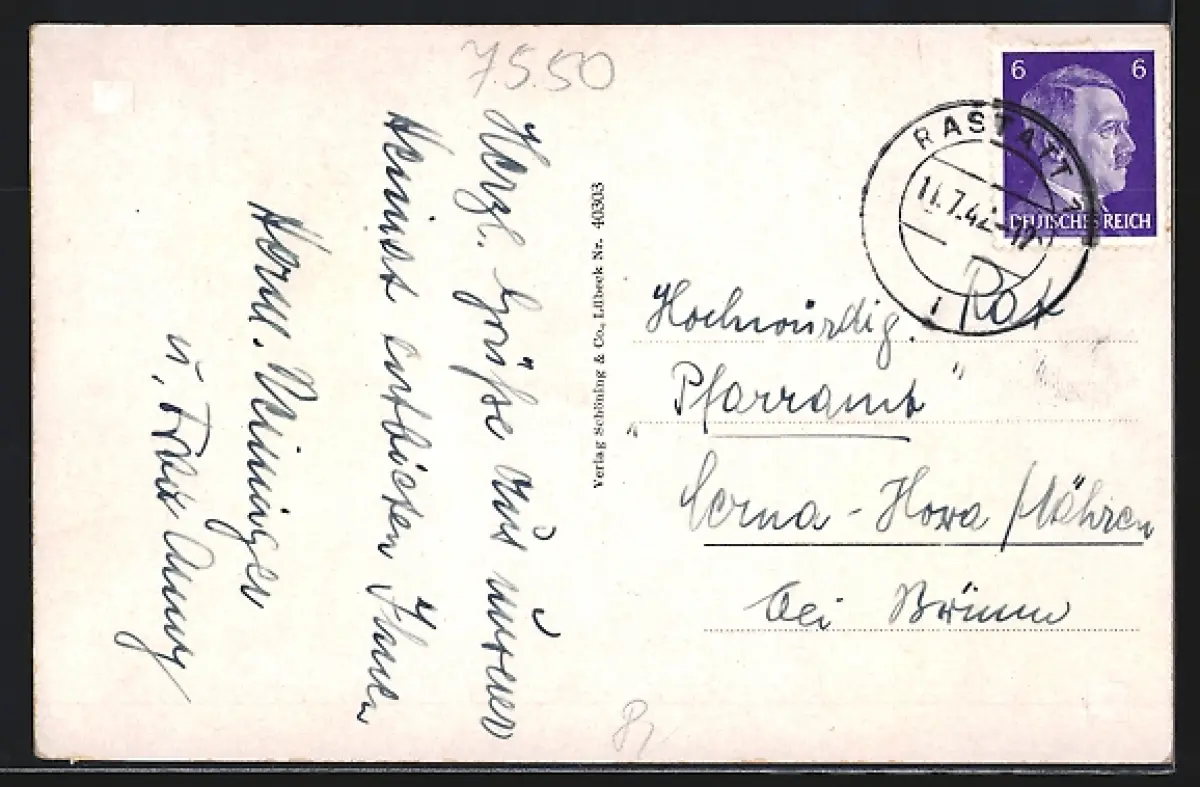 7.5.50
Herzl. Grüße aus unserer
Heimat entbieten Ihnen
Herm. Nininger
u. Frau Anny
Verlag Schöning & Co., Lübeck Nr. 40303
6 6
DEUTSCHES REICH
RASTATT
11.7.42
Hochwürdig.
Pfarramt
Cerna-Hora /Mähren
bei Brünn